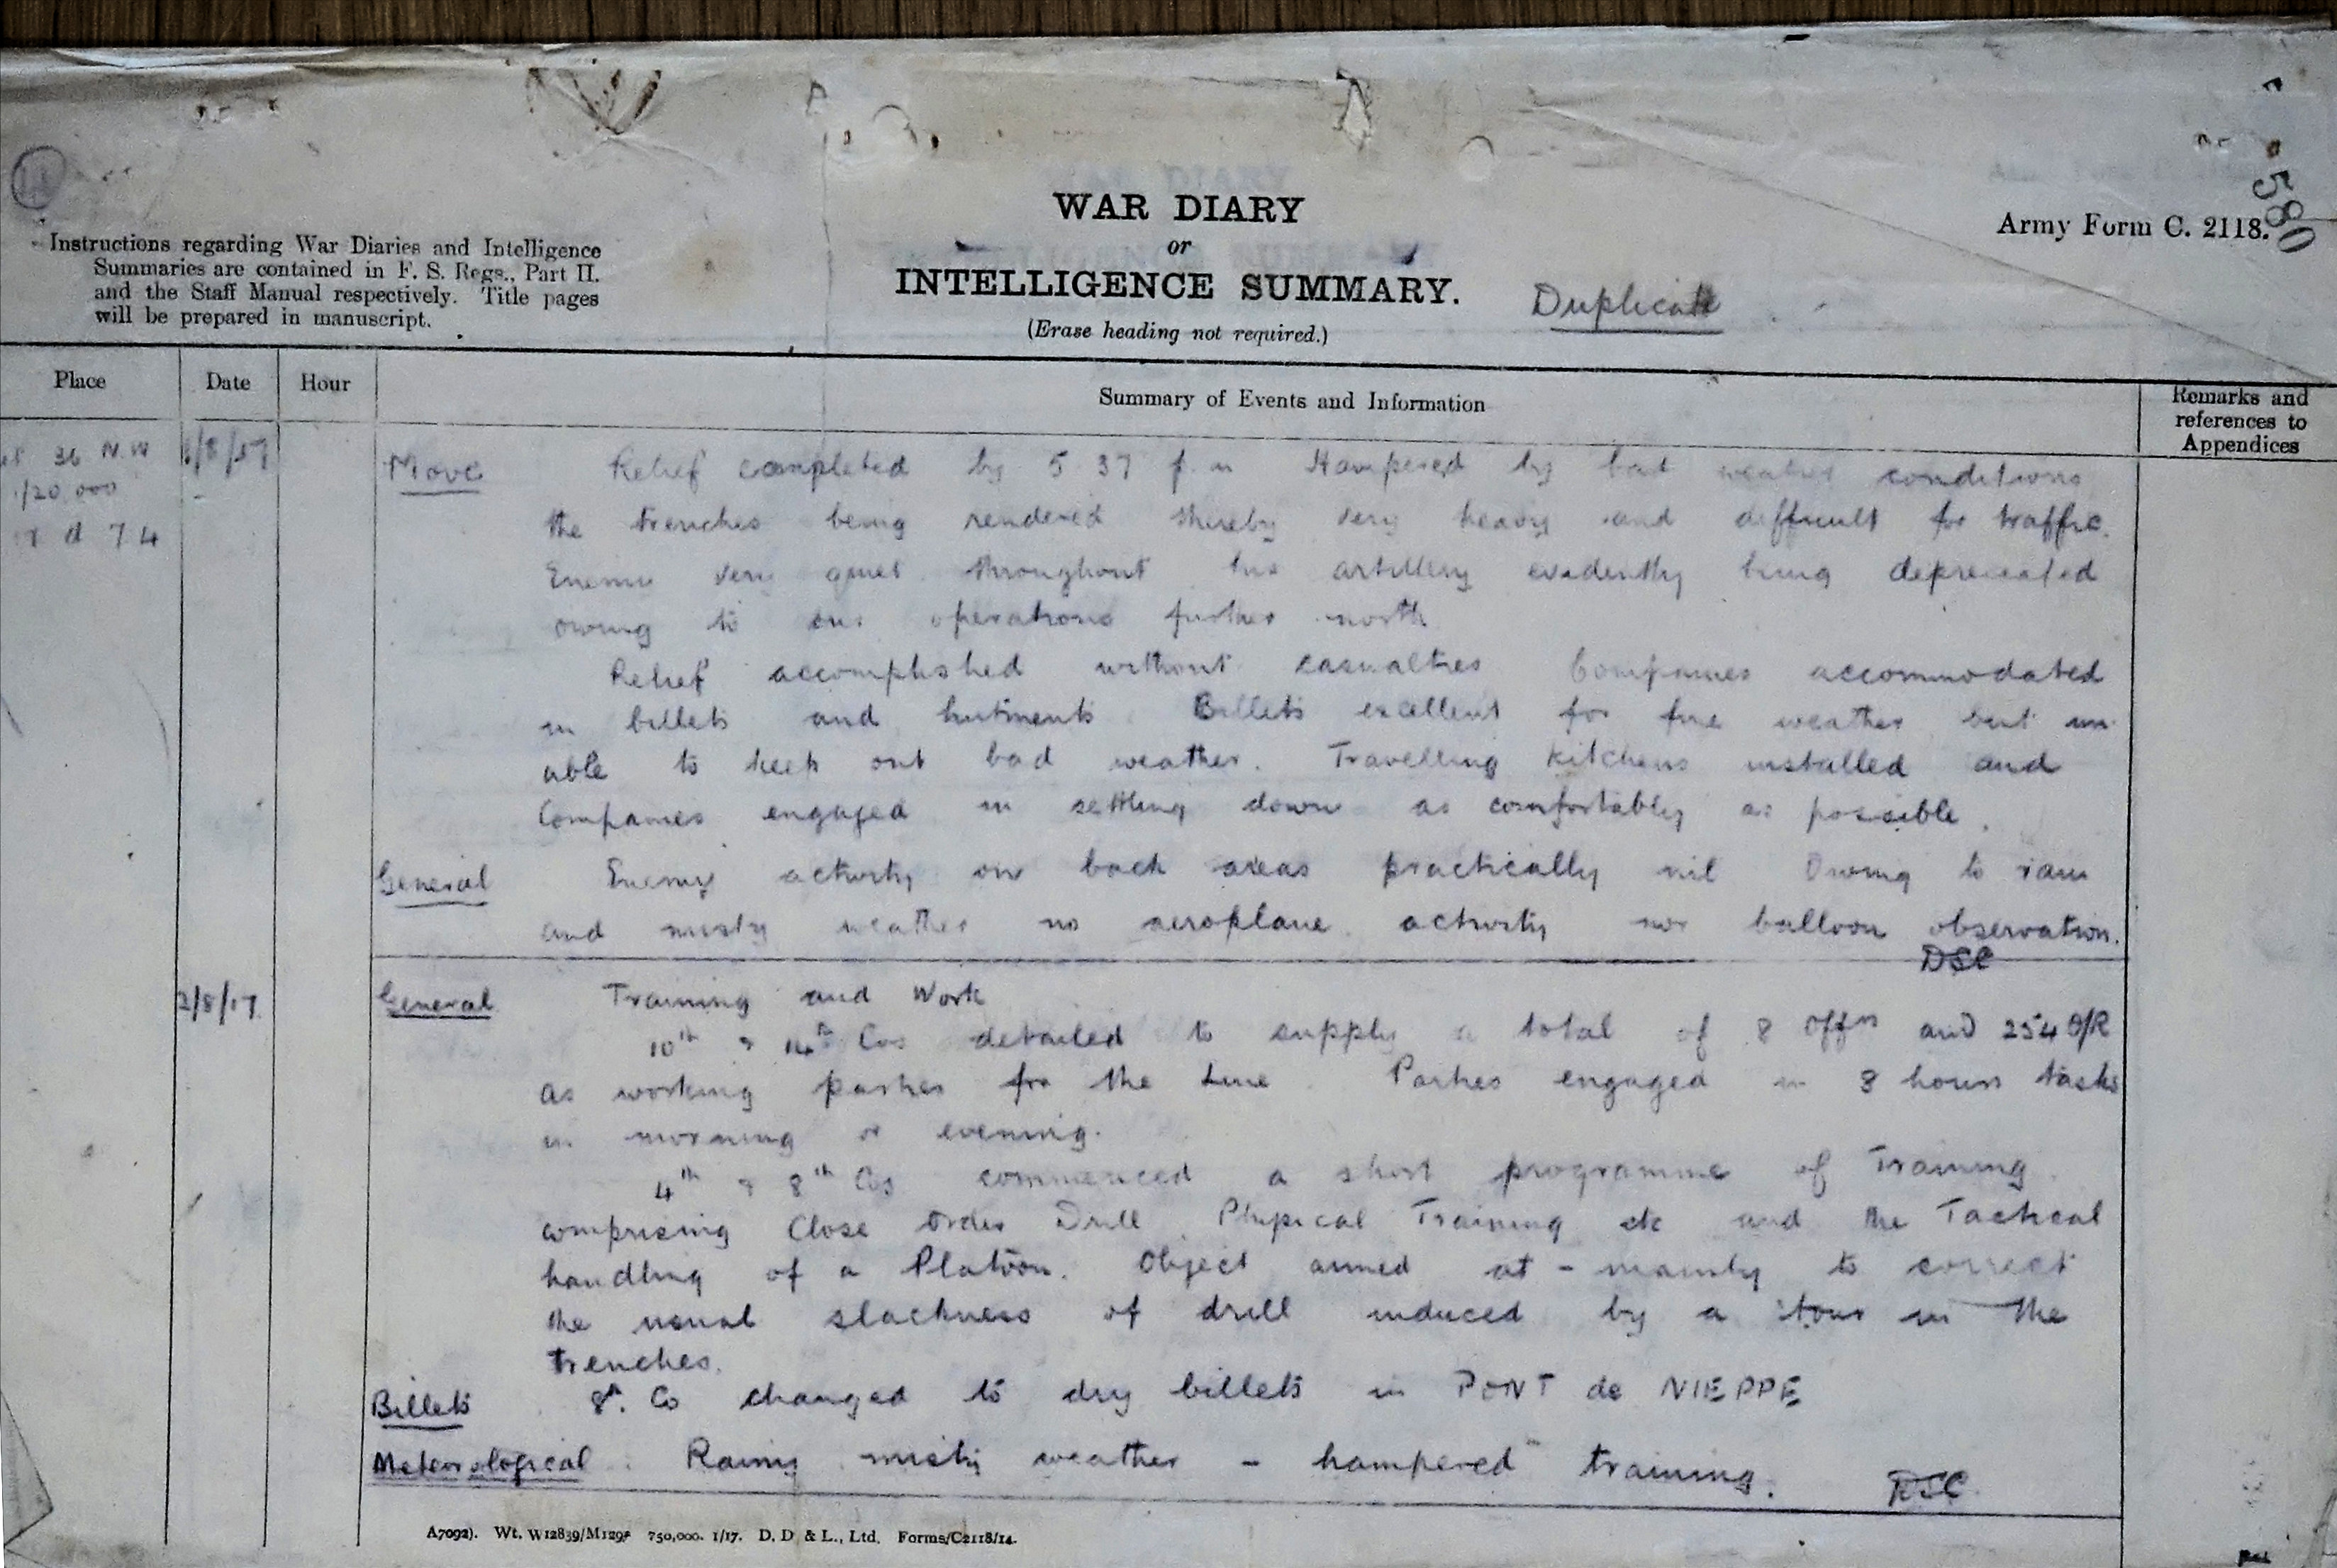 580
Instructions regarding War Diaries and Intelligence
Summaries are contained in F. S. Regs., Part II.
and the Staff Manual respectively. Title pages
will be prepared in manuscript.
WAR DIARY
or
INTELLIGENCE SUMMARY.
(Erase heading not required.)
Duplicate
Army Form C. 2118.
Place Date Hour Summary of Events and Information Remarks and
references to
Appendices
36 N.W 1/8/17
1/20,000
d 7 4
Move Relief completed by 5 37 p.m Hampered by bad weather conditions
the trenches being rendered thereby very heavy and difficult for traffic.
Enemy very quiet throughout his artillery evidently being depreciated
owing to our operations further north
Relief accomplished without casualties Companies accommodated
in billets and hutments. Billets excellent for fine weather but un-
able to keep out bad weather. Travelling Kitchens installed and
Companies engaged in settling down as comfortably as possible.
General Enemy activity on back areas practically nil Owing to rain
and misty weather no aeroplane activity nor balloon observation.
DSC
2/8/17 General Training and Work
10th & 14th Cos detailed to supply a total of 8 Offrs and 254 O/R
as working parties for the Line. Parties engaged in 8 hours tasks
in morning or evening.
4th & 8th Cos commenced a short programme of Training
comprising Close Order Drill Physical Training etc and the Tactical
handling of a Platoon. Object aimed at - mainly to correct
the usual slackness of drill induced by a tour in the
trenches.
Billets 8th. Co changed to dry billets in PONT de NIEPPE
Meteorological. Rainy misty weather - hampered training. DSC
A7092). Wt. W12839/M1295 750,000. 1/17. D. D & L., Ltd. Forms/C2118/14.